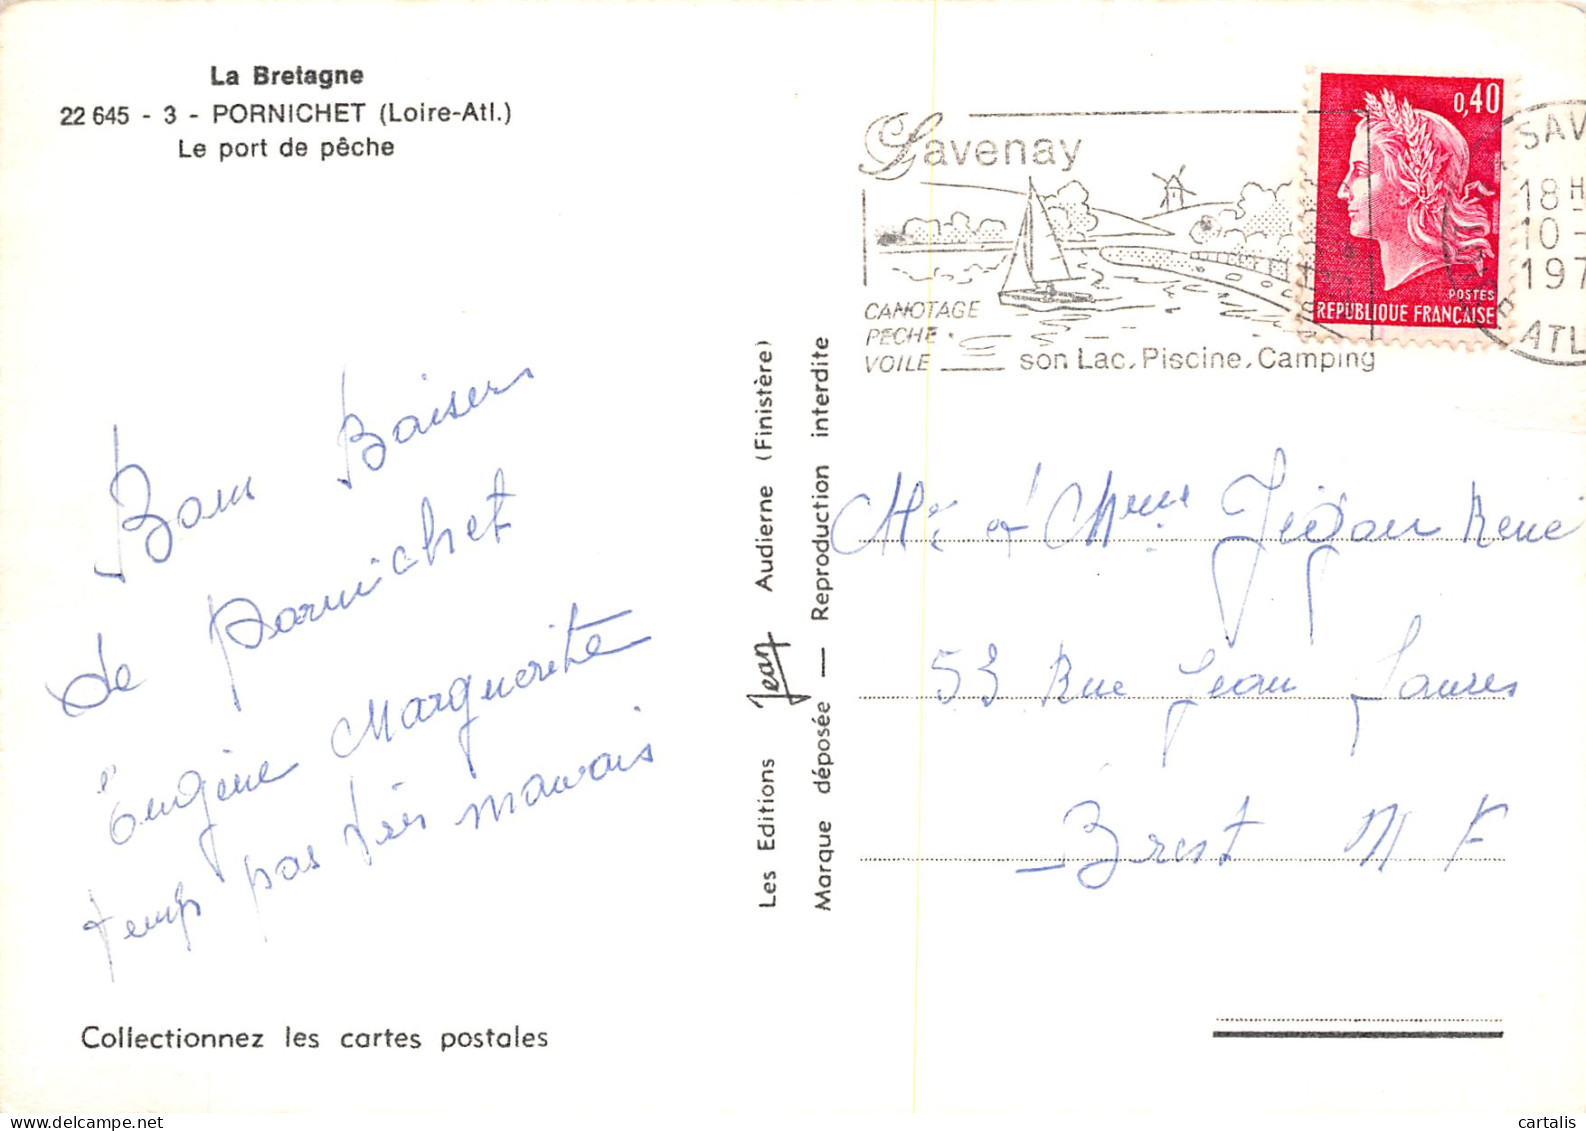 La Bretagne
22 645 - 3 - PORNICHET (Loire-Atl.)
Le port de pêche
Bons Baisers
de Pornichet
Eugène Marguerite
temps pas très mauvais
Collectionnez les cartes postales
Les Editions Jean Audierne (Finistère)
Marque déposée — Reproduction interdite
Savenay
CANOTAGE
PECHE
VOILE
son Lac, Piscine, Camping
0,40
POSTES
REPUBLIQUE FRANÇAISE
SAV
18 H
10 -
197
ATL
Mr et Mme René
53 Rue Jean Jaurès
Brest N F
cartalis